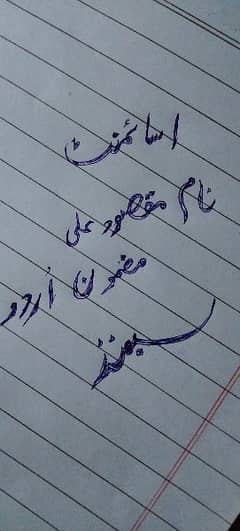 اسائمنٹ
نام مقصود علی
مضمون اُردو